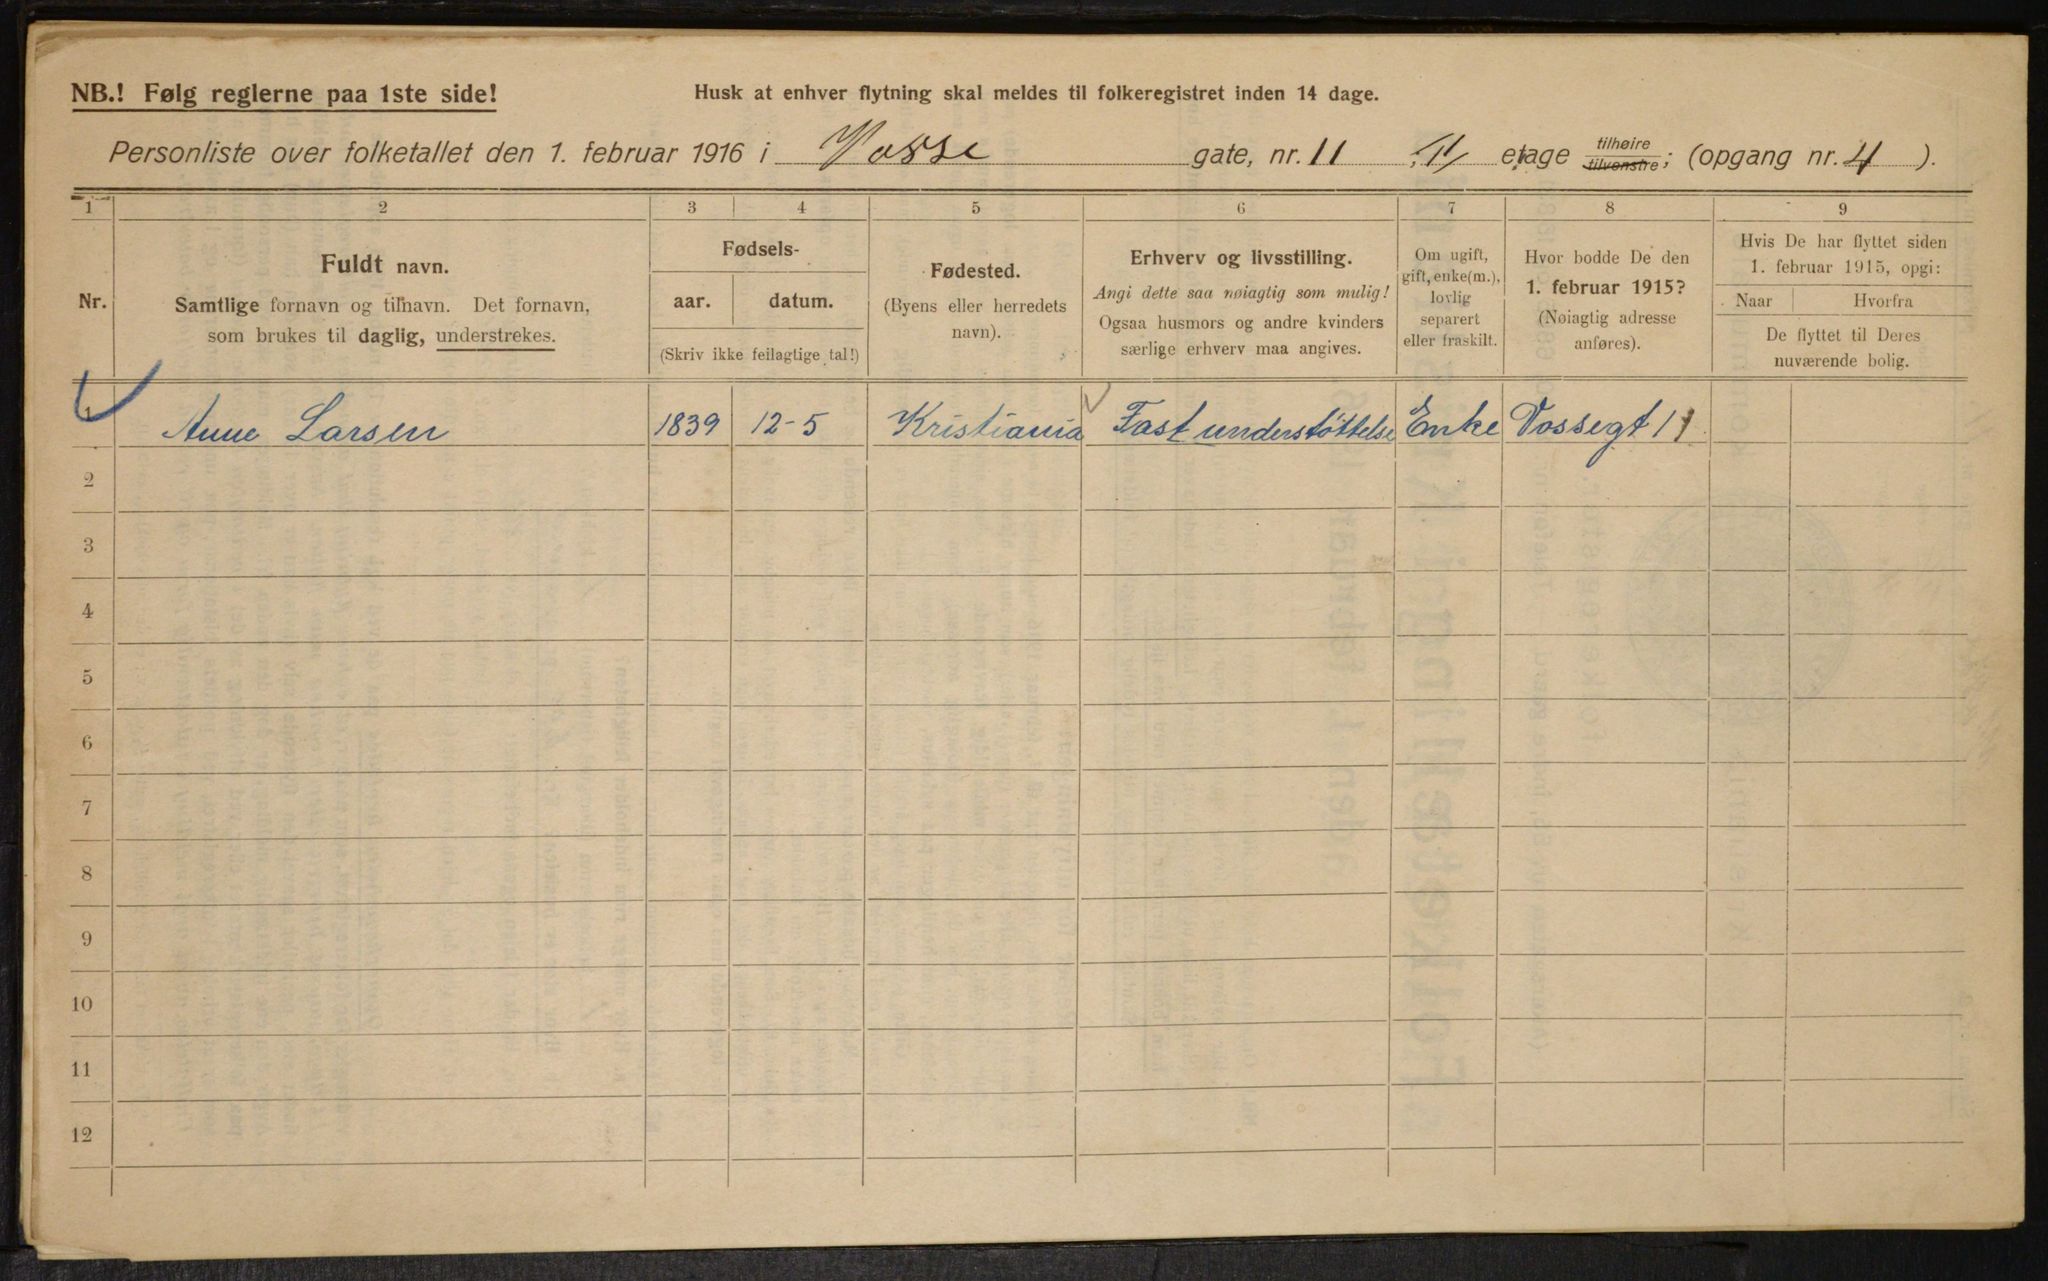 NB.! Følg reglerne paa 1ste side!
Husk at enhver flytning skal meldes til folkeregistret inden 14 dage.
Personliste over folketallet den 1. februar 1916 i Vosse gate, nr. 11 II etage tilhøire tilvenstre; (opgang nr. 4 ).
1 2 3 4 5 6 7 8 9
Nr.
Fuldt navn.
Samtlige fornavn og tilnavn. Det fornavn,
som brukes til daglig, understrekes.
Fødsels-
aar. datum.
(Skriv ikke feilagtige tal!)
Fødested.
(Byens eller herredets
navn).
Erhverv og livsstilling.
Angi dette saa nøiagtig som mulig!
Ogsaa husmors og andre kvinders
særlige erhverv maa angives.
Om ugift,
gift, enke(m.),
lovlig
separert
eller fraskilt.
Hvor bodde De den
1. februar 1915?
(Nøiagtig adresse
anføres).
Hvis De har flyttet siden
1. februar 1915, opgi:
Naar Hvorfra
De flyttet til Deres
nuværende bolig.
1 Anne Larsen 1839 12-5 Kristiania Fast understøttelse Enke Vossegt 11
2
3
4
5
6
7
8
9
10
11
12